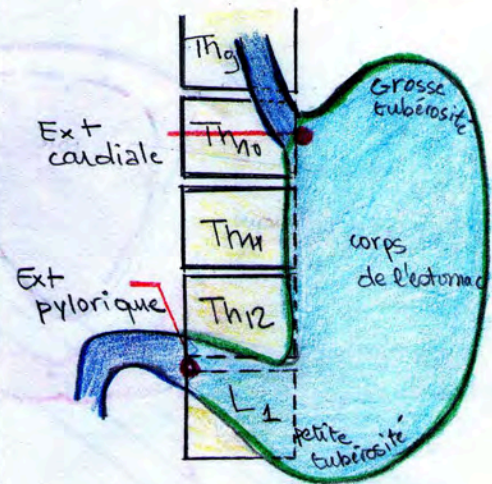 Th9
Grosse
tubérosité
Ext
cardiale
Th10
Th11
corps
de l'estomac
Ext
pylorique
Th12
L1
petite
tubérosité